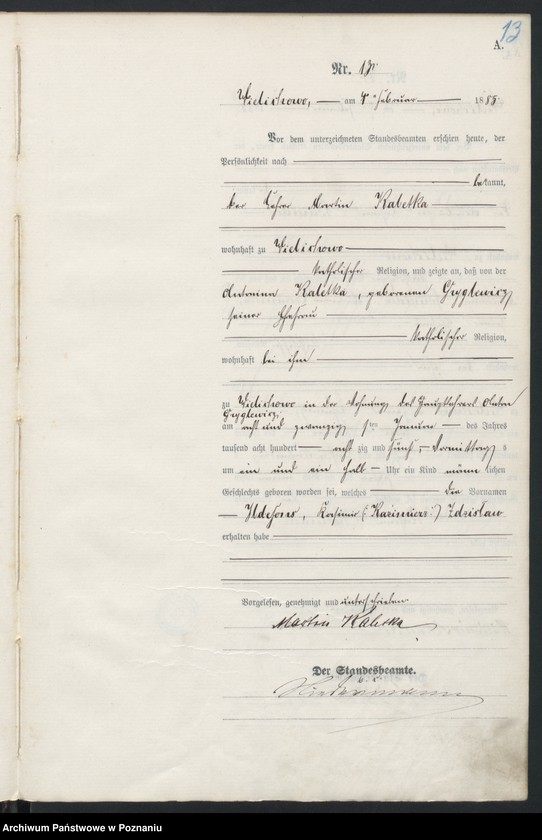 13
A.
Nr. 13
Wielichowo, am 4 ten Februar 1885
Vor dem unterzeichneten Standesbeamten erschien heute, der
Persönlichkeit nach
bekannt,
der Lehrer Martin Kaletka
wohnhaft zu Wielichowo
katholischer Religion, und zeigte an, daß von der
Antonina Kaletka, geborenen Gryglewicz,
seiner Ehefrau
katholischer Religion,
wohnhaft bei ihm
zu Wielichowo in der Wohnung des Hauptlehrers Anton
Gryglewicz,
am acht und zwanzigsten Januar des Jahres
tausend acht hundert acht zig und fünf, Vormittags
um ein und ein halb Uhr ein Kind männlichen
Geschlechts geboren worden sei, welches die Vornamen
Ildefons, Kasimir (Kazimierz) Zdzisław
erhalten habe
Vorgelesen, genehmigt und unterschrieben
Martin Kaletka
Der Standesbeamte.
Archiwum Państwowe w Poznaniu